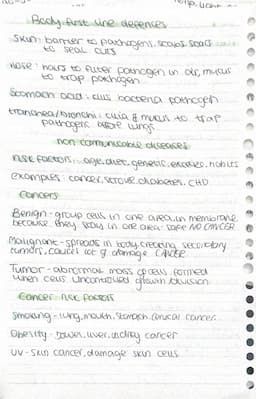 Body first line defences
Skin: barrier to pathogens, scabs
to seal cuts
nose: hairs to filter pathogen in air, mucus
to trap pathogen
Stomach acid: kills bacteria pathogen
trachea/bronchi: cilia & mucus to trap
pathogens before lungs
non comunicable diseases
risk factors: age, diet, genetic, exercise, habits
examples: cancer, stroke, diabetes, CHD
Cancers
Benign - group cells in one area, in membrane
because they stay in one area - safe NO CANCER
Malignant - spreads in body, creating secondary
tumors, causes lot of damage CANCER
Tumor - abnormal mass of cells formed
when cells uncontrolled growth division
Cancer risk factors
Smoking - lung, mouth, stomach, cervical cancer
Obesity - bowel, liver, kidney cancer
UV - skin cancer, damage skin cells